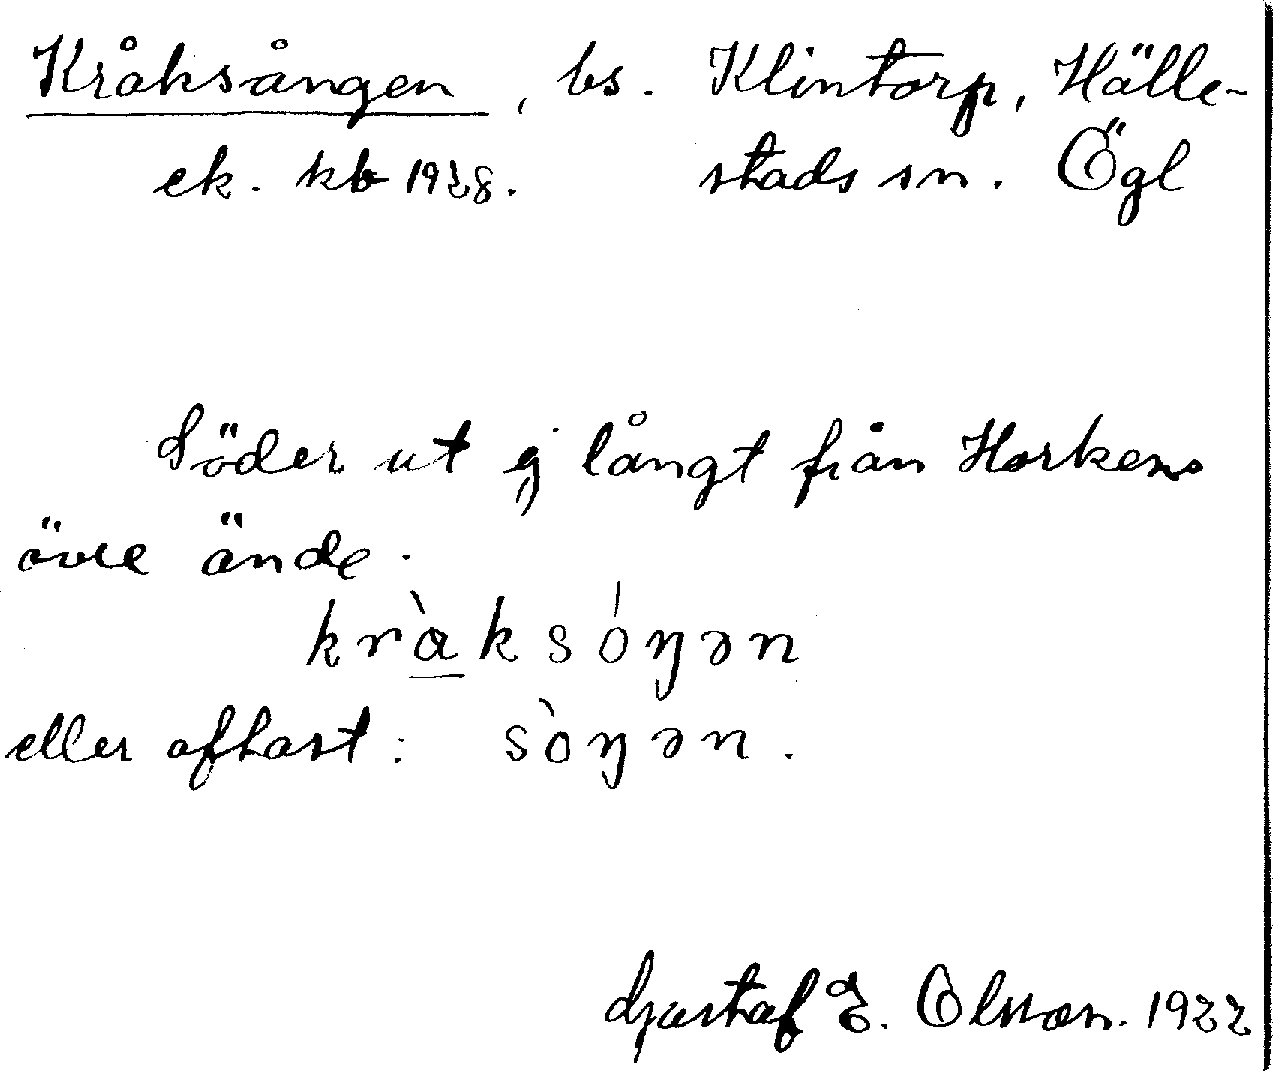 Kråksången, bs. Klintorp, Hälle-
ek. kb 1928. stads sn. Ögl
Söder ut ej långt från Horkens
övre ände.
kràksóŋən
eller oftast: sòŋən.
Gustaf E. Olsson. 1922